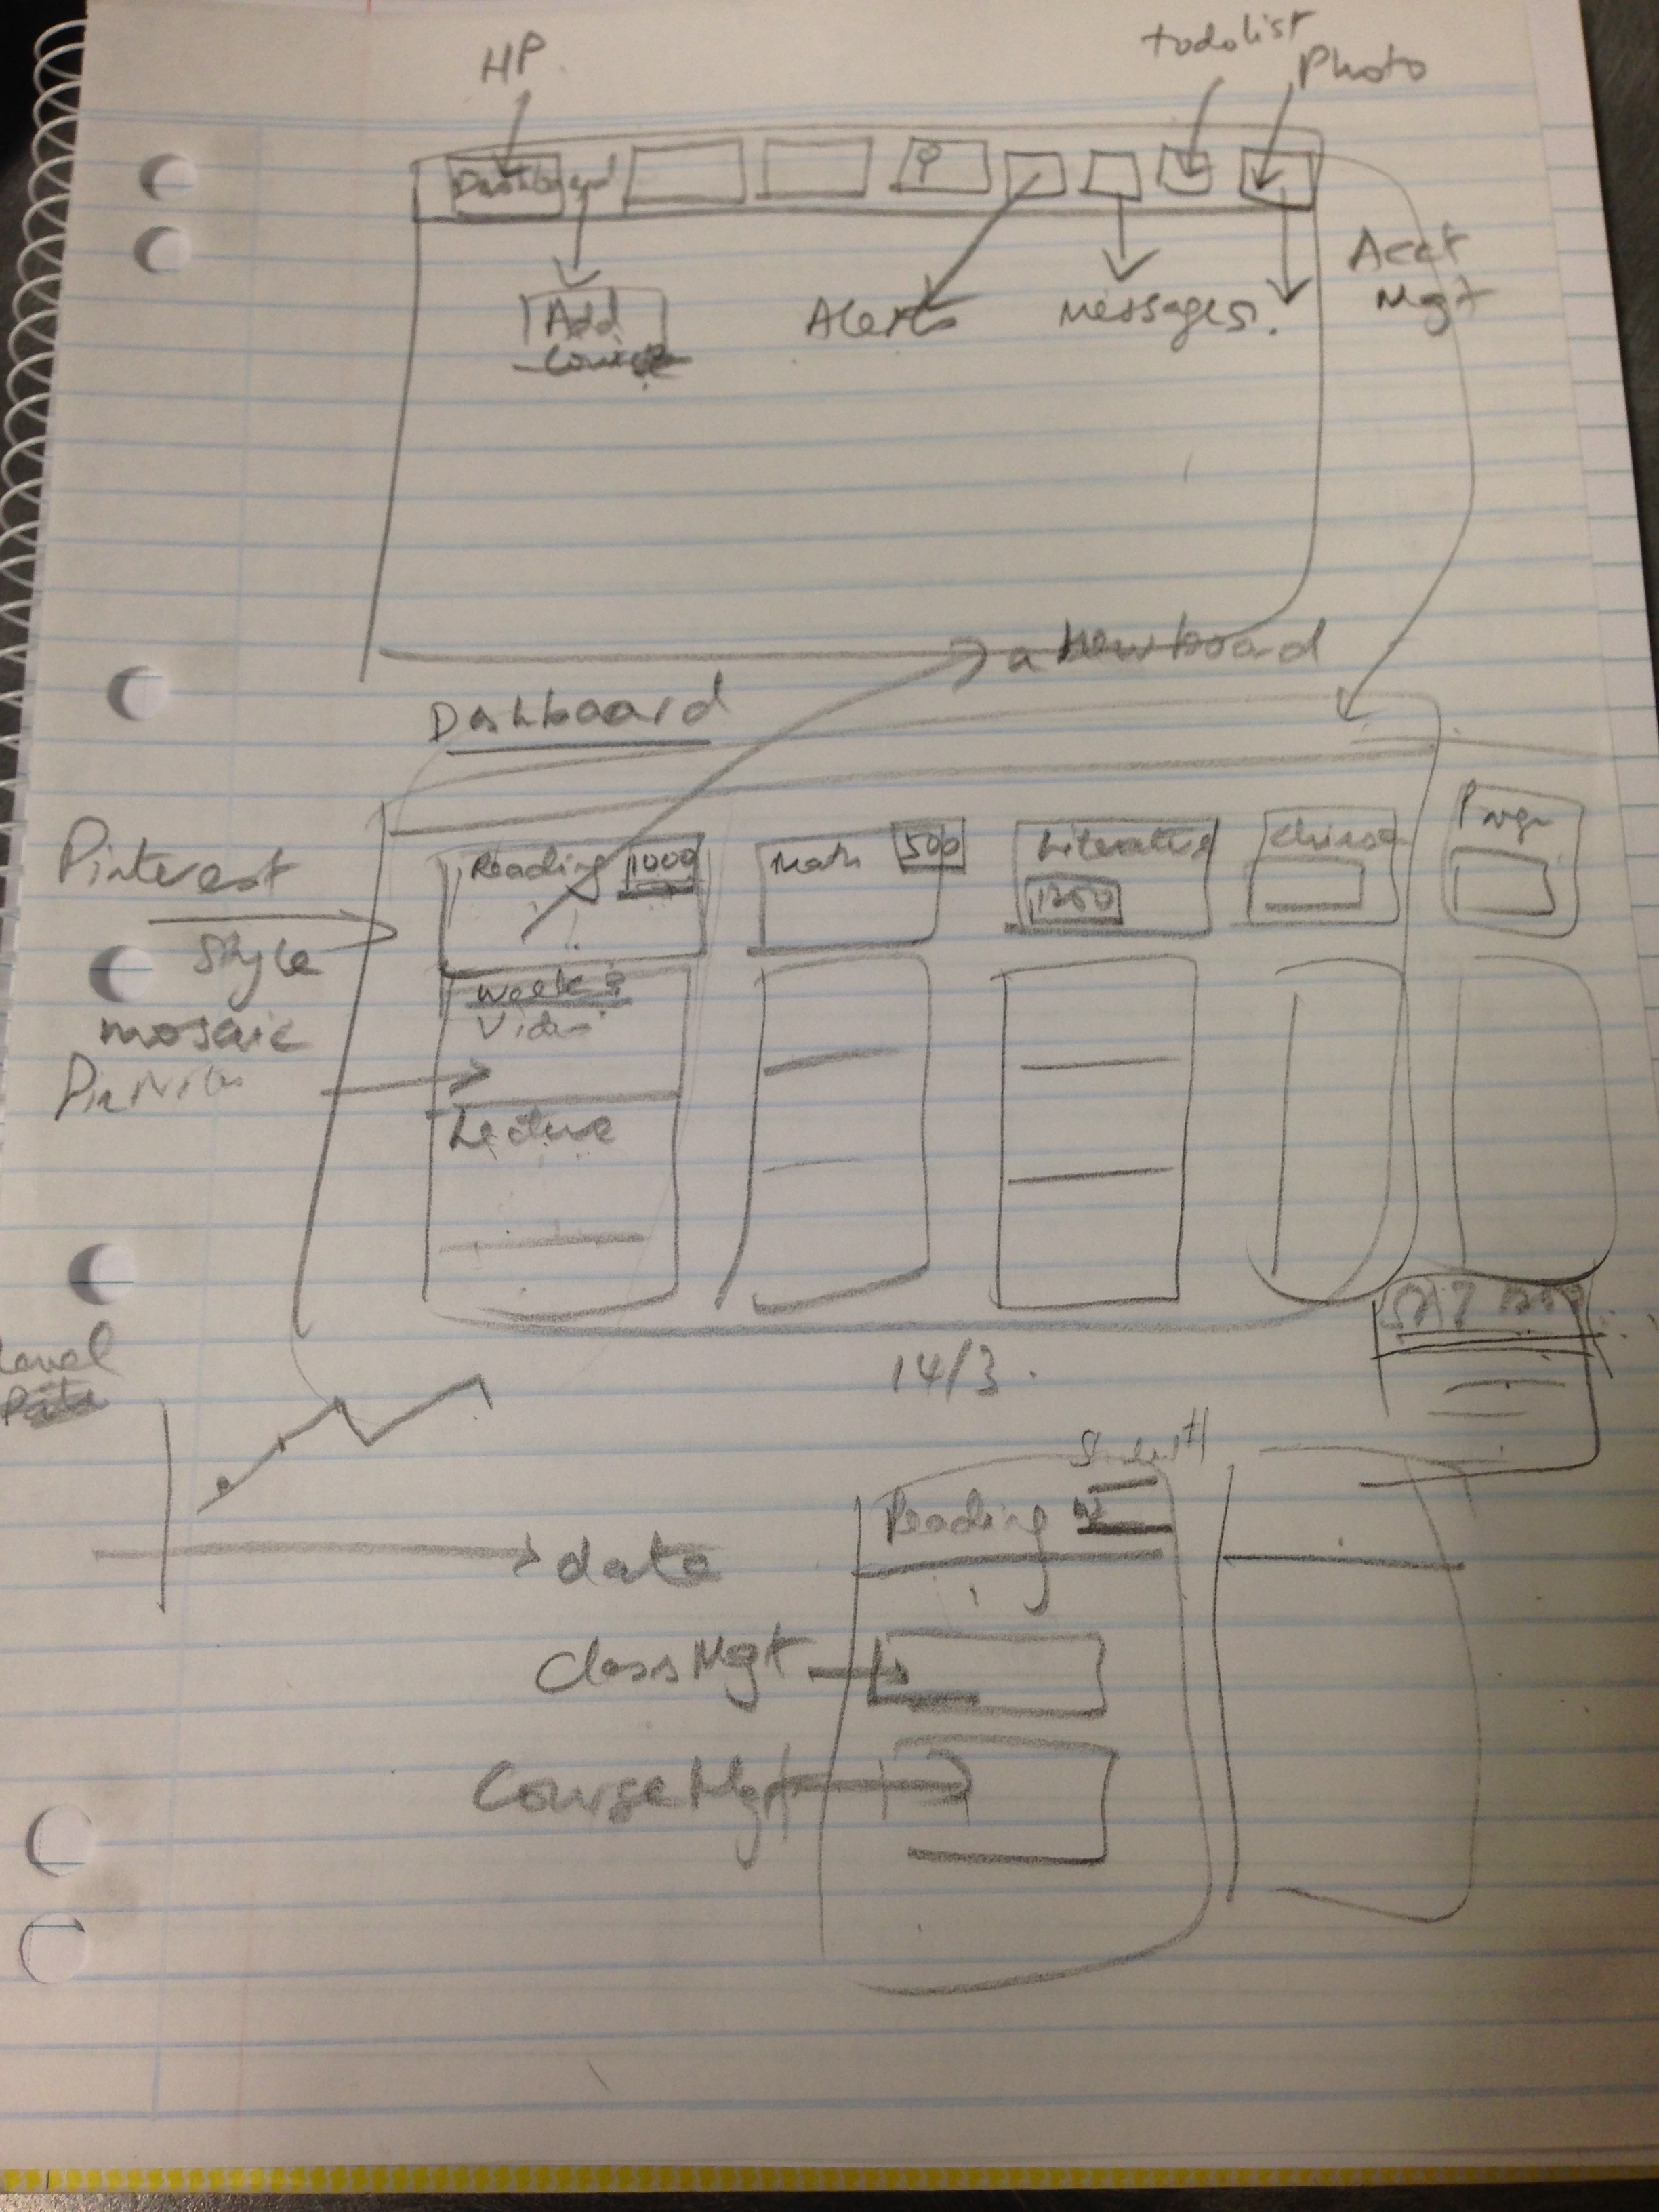 HP
todolist
Photo
Dashboard
Add
Course
Alerts
Messages.
Acct
Mgt
a New board
Dashboard
Pinterest
Style
mosaic
Reading 1000
Math 500
Literature
1200
Chinese
Week 3
Video
Lecture
Level
14/3.
date
Reading
Class Mgt
Course Mgt